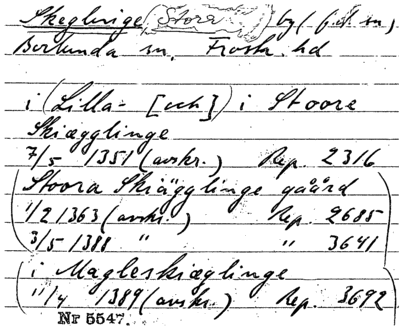 Skeglinge (Stora) by (f.d. sn)
Borlunda sn, Frosta hd
i (Lilla- [och]) i Stoore
Skiægglinge
7/5 1351 (avskr.) Rep. 2316
(Stoora Skiägglinge gåård
1/2 1363 (avskr.) Rep. 2685
3/5 1388 " " 3641
(i Magleskiæglinge
11/4 1389 (avskr.) Rep. 3692)
Nr 5547.